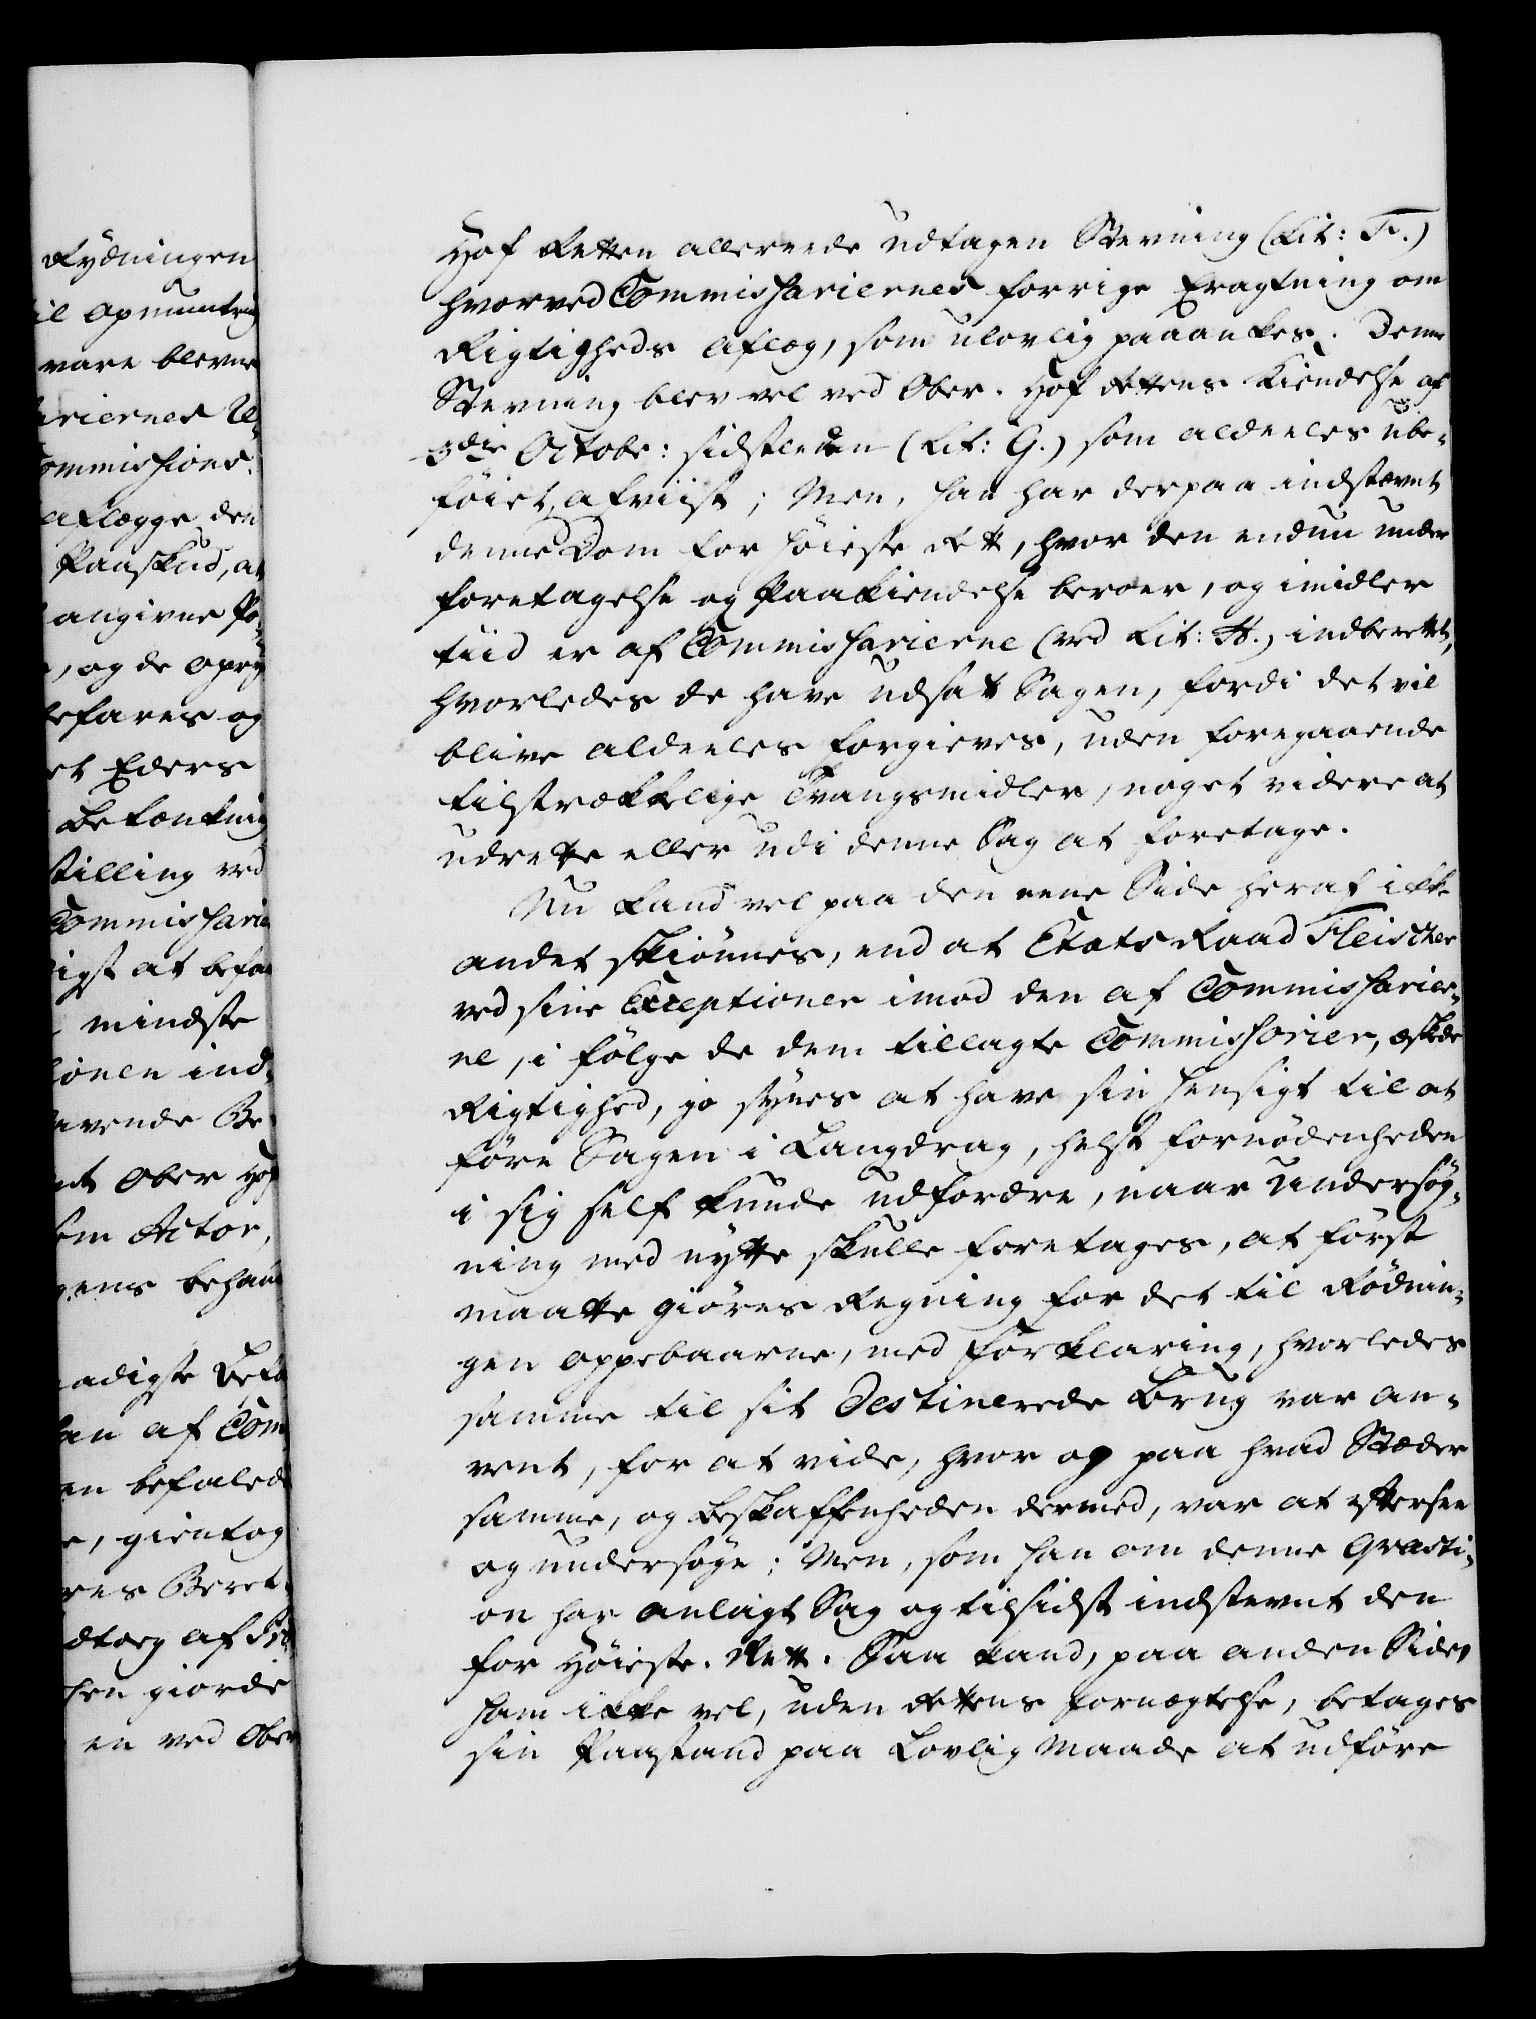 Rydningen
il opmuntring
vare blevne
ariernes U-
ommissions-
aflægge den
Paaskud, at
angivne Po-
, og de opry
befares og
et Eders
Betænkning
stilling ved
Commissarie
digst at befa
mindste
ionen ind-
avende Be-
nt Ober Hof
som Actor,
gens behan
naadigste Befa
han af Com
en befalede
e, gientog
res Beret-
dtog af Pro
sen giorde
en ved Ober
Hof Retten allereede udtagen Stevning (Lit: F.)
hvorved Commissariernes forrige Eragtning om
Rigtigheds aflæg, som ulovlig paaankes. Denne
Stevning blev vel ved Ober-Hof Rettens Kiendelse af
3die Octobr: sidstleden (Lit: G.) som aldeeles ube-
føiet, afviist; Men, han har derpaa indstævnet
denne Dom for Høieste Rett, hvor den endnu under
foretagelse og Paakiendelse beroer, og imidler
tiid er af Commissarierne (ved Lit: H.) indberettet,
hvorledes de have udsatt Sagen, fordi det vil
blive aldeeles forgieves, uden foregaaende
tilstrækkelige Tvangsmidler, noget videre at
udrette eller udi denne Sag at foretage.
Nu kand vel paa den eene Side heraf ikke
andet skiønnes, end at Etats Raad Fleischer
ved sine Exceptioner imod den af Commissarier-
ne, i følge de dem tillagte Commissorier, æskede
Rigtighed, jo synes at have sin hensigt til at
føre Sagen i Langdrag, helst fornødenheden
i sig self kunde udfordre, naar Undersøg-
ning med nytte skulle foretages, at først
maatte giøres Regning for det til Rødnin-
gen oppebaarne, med Forklaring, hvorledes
samme til sit Destinerede Brug var an-
vent, for at vide, hvor og paa hvad Stæder
samme, og beskaffenheden dermed, var at efftersee
og undersøge; Men, som han om denne Qvæsti-
on har anlagt Sag og tilsidst indstevnt den
for Høieste-Rett. Saa kand, paa anden Side,
ham ikke vel, uden Rettens fornægtelse, betages
sin Paastand paa Lovlig Maade at udføre